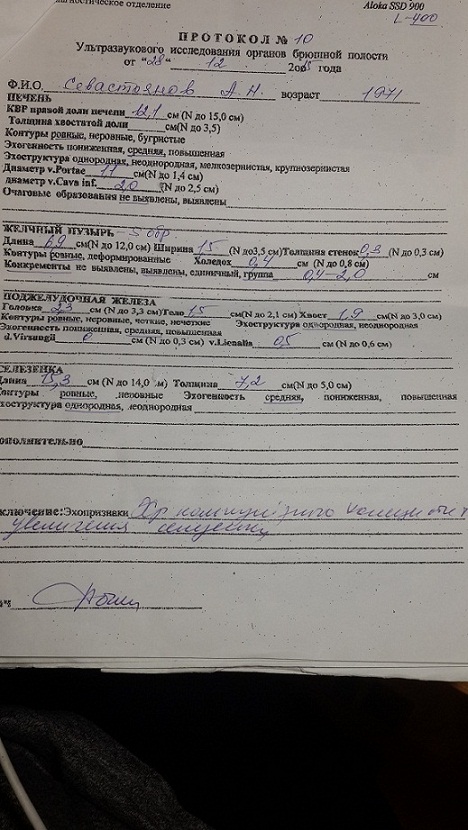 агностическое отделение Aloka SSD 900
L-400
ПРОТОКОЛ № 10
Ультразвукового исследования органов брюшной полости
от "28" 12 200 года
Ф.И.О. Севастоянов А.Н. возраст 1971
ПЕЧЕНЬ
КВР правой доли печени 12,1 см (N до 15,0 см)
Толщина хвостатой доли см(N до 3,5)
Контуры ровные, неровные, бугристые
Эхогенность пониженная, средняя, повышенная
Эхоструктура однородная, неоднородная, мелкозернистая, крупнозернистая
Диаметр v.Portae 11 см(N до 1,4 см)
диаметр v.Cava inf. 20 (N до 2,5 см)
Очаговые образования не выявлены, выявлены
ЖЕЛЧНЫЙ ПУЗЫРЬ - S обр
Длина 6,9 см(N до 12,0 см) Ширина 1,5 (N до3,5 см)Толщина стенок 0,3 (N до 0,3 см)
Контуры ровные, деформированные Холедох 0,4 см (N до 0,8 см)
Конкременты не выявлены, выявлены, единичный, группа 0,4-2,0 см
ПОДЖЕЛУДОЧНАЯ ЖЕЛЕЗА
Головка 2,3 см (N до 3,3 см)Тело 1,5 см(N до 2,1 см) Хвост 1,9 см(N до 3,0 см)
Контуры ровные, неровные, четкие, нечеткие Эхоструктура однородная, неоднородная
Эхогенность пониженная, средняя, повышенная
d.Virsungii 0 см (N до 0,3 см) v.Lienalis 0,5 см (N до 0,6 см)
СЕЛЕЗЕНКА
Длина 15,3 см (N до 14,0 м) Толщина 7,2 см(N до 5,0 см)
онтуры ровные, неровные Эхогенность средняя, пониженная, повышенная
хоструктура однородная, неоднородная
ополнительно
ключение: Эхопризнаки Хр
увеличения селезенки